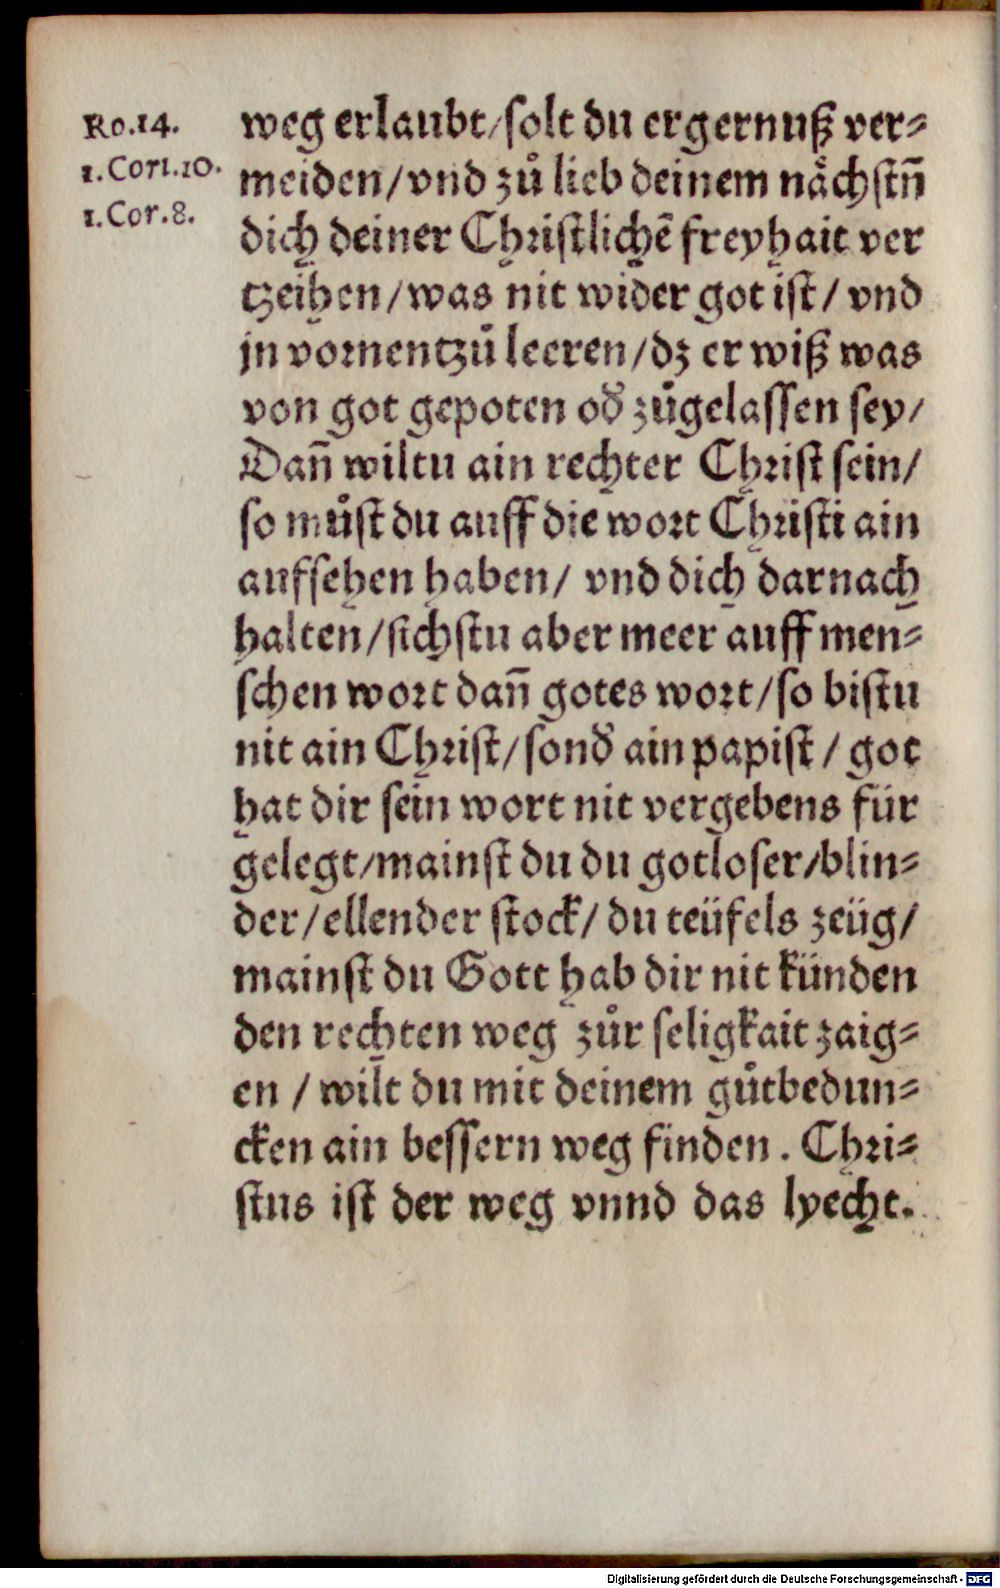 Ro.14.
1.Cori.10.
1.Cor.8.
weg erlaubt/solt du ergernuß ver⸗
meiden/vnd zů lieb deinem nåchstn̄
dich deiner Christlichē freyhait ver
tzeihen/was nit wider got ist/ vnd
jn vornentzů leeren/dz er wiß was
von got gepoten od̕ zůgelassen sey/
Dan̄ wiltu ain rechter Christ sein/
so můst du auff die wort Christi ain
aufsehen haben/ vnd dich darnach
halten/sichstu aber meer auff men⸗
schen wort dan̄ gotes wort/so bistu
nit ain Christ/sond̕ ain papist/ got
hat dir sein wort nit vergebens für
gelegt/mainst du du gotloser/blin⸗
der/ellender stock/ du teüfels zeüg/
mainst du Gott hab dir nit künden
den rechten weg zůr seligkait zaig⸗
en / wilt du mit deinem gůtbedun⸗
cken ain bessern weg finden. Chri⸗
stus ist der weg vnnd das lyecht.
Digitalisierung gefördert durch die Deutsche Forschungsgemeinschaft - DFG